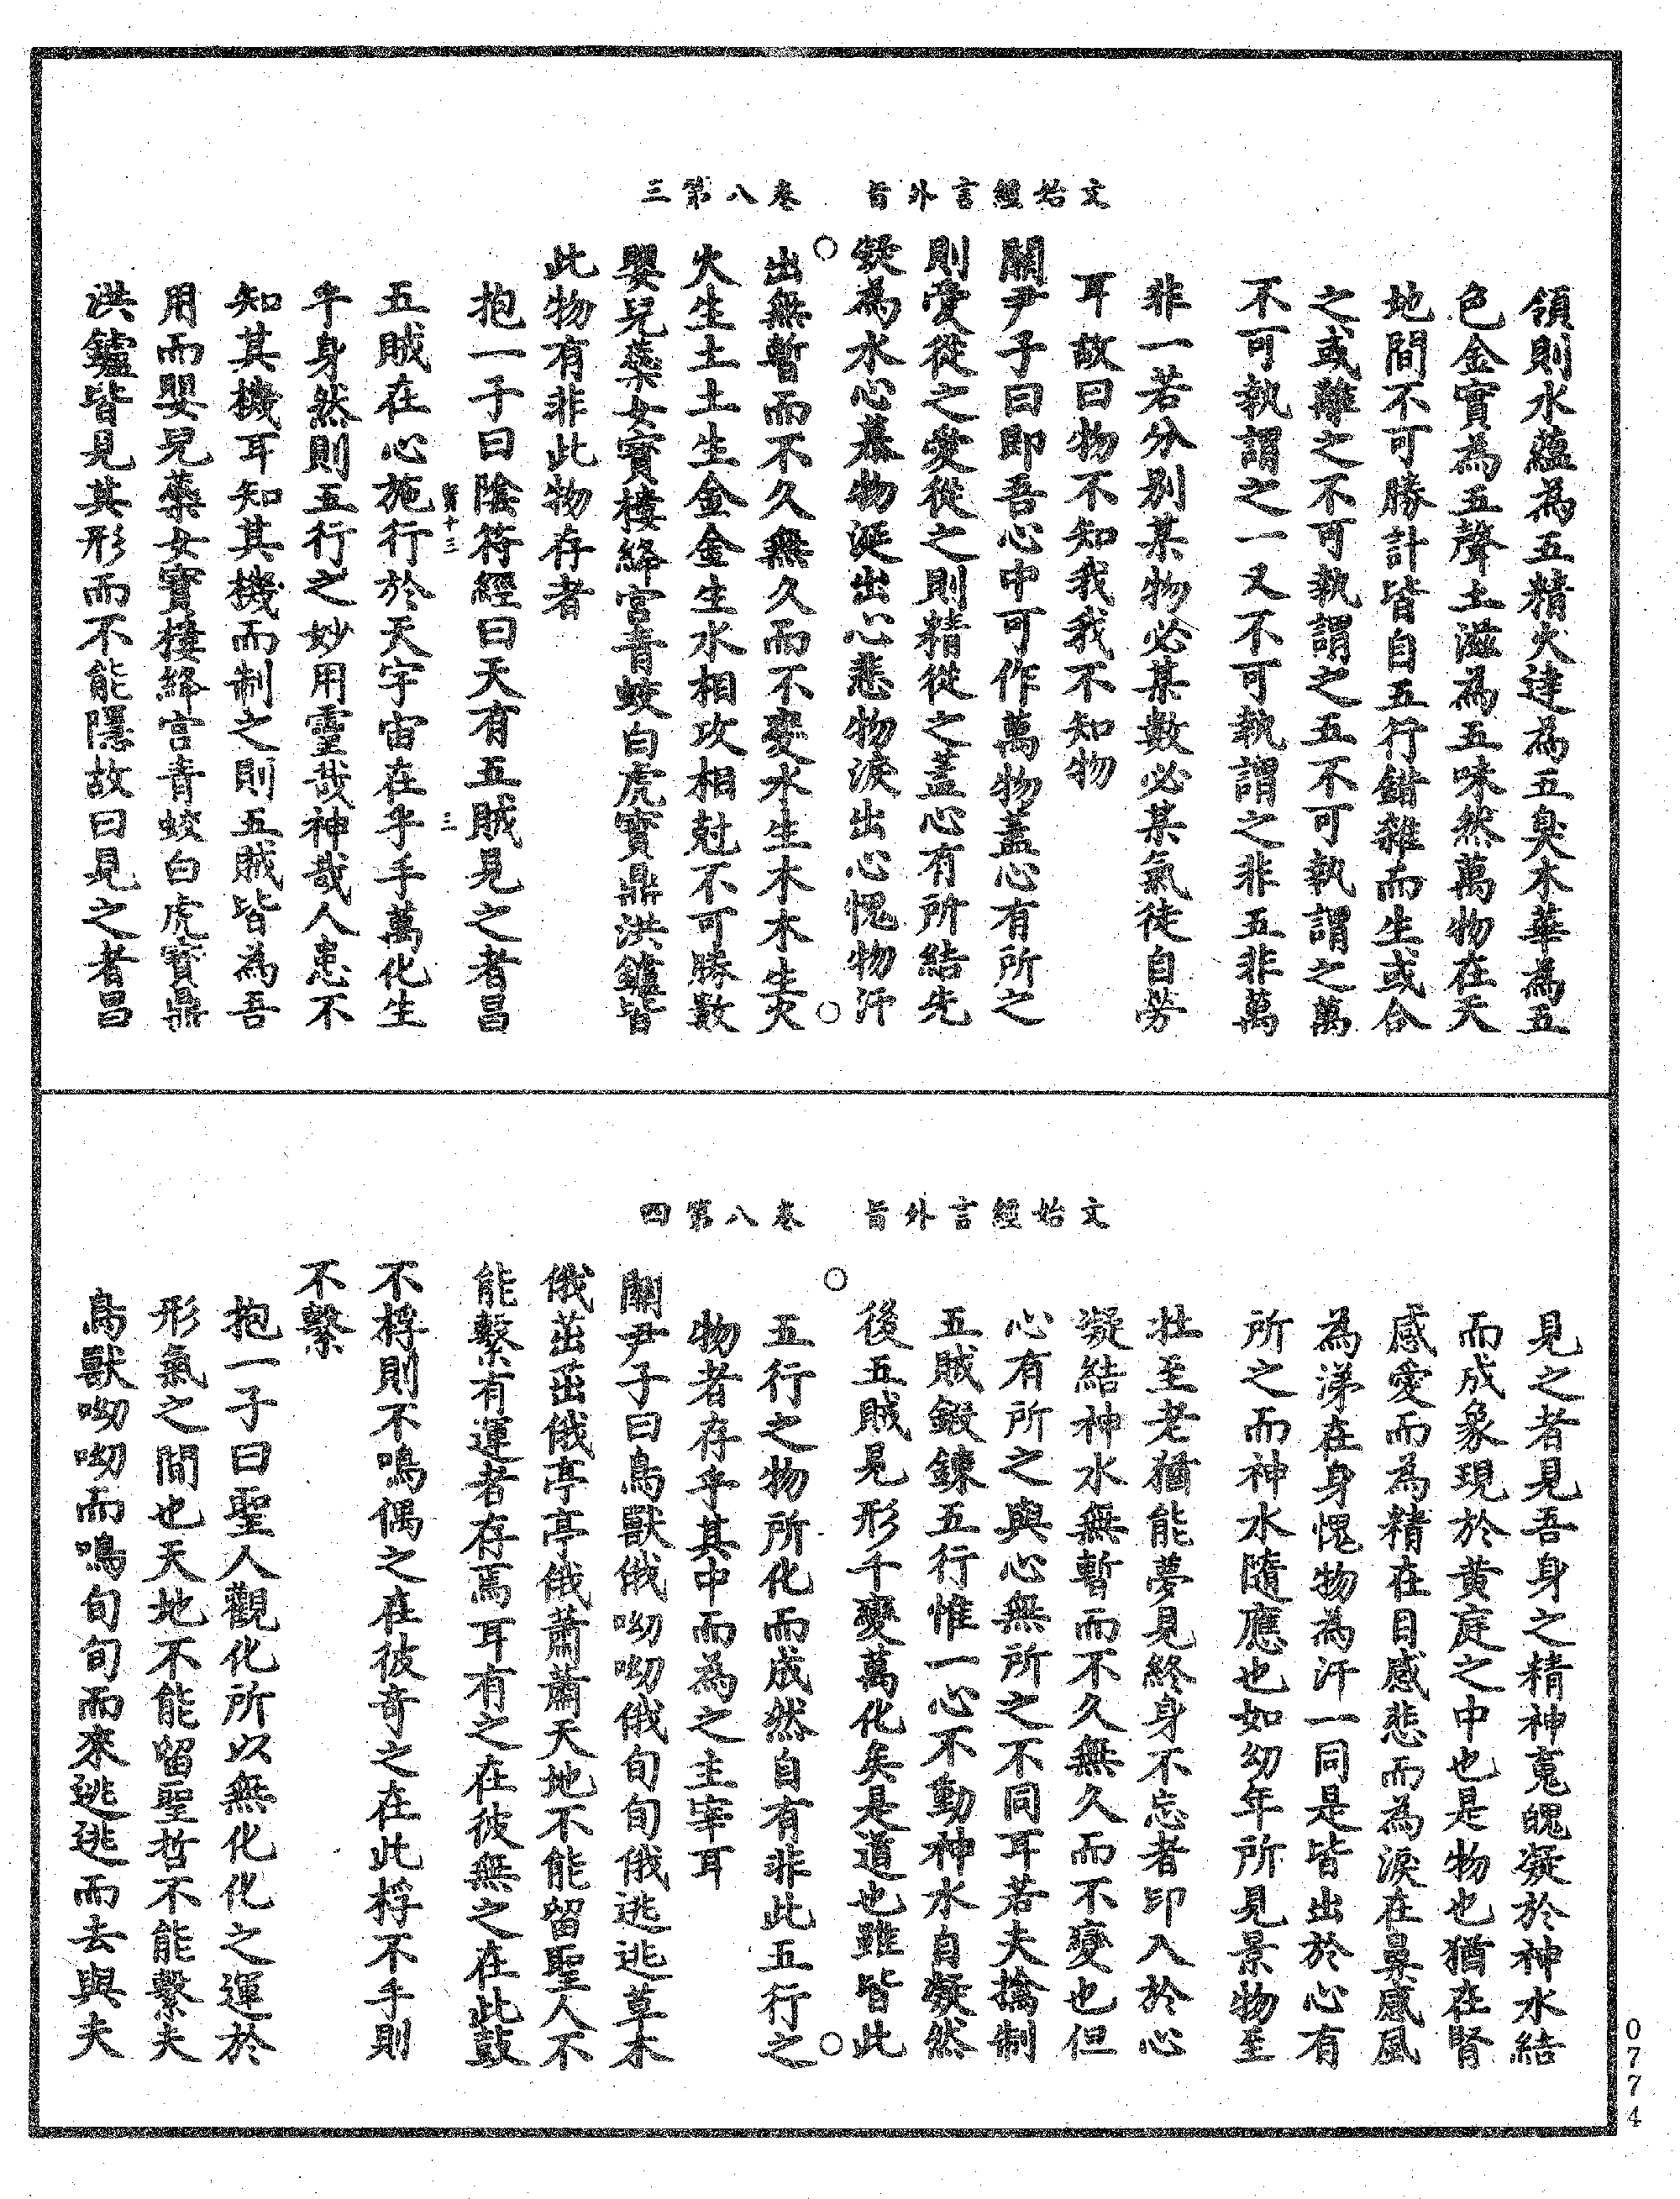 文始經言外旨　卷八第三
領則水蘊為五精火達為五臭木華為五
色金實為五聲土滋為五味然萬物在天
地間不可勝計皆自五行錯雜而生或合
之或離之不可執謂之五不可執謂之萬
不可執謂之一又不可執謂之非五非萬
非一若分別某物必某數必某氣徒自勞
耳故曰物不知我我不知物
關尹子曰即吾心中可作萬物蓋心有所之
則愛從之愛從之則精從之蓋心有所結先
凝為水心慕物涎出心悲物淚出心愧物汗
出無暫而不久無久而不變水生木木生火
火生土土生金金生水相攻相尅不可勝數
嬰兒蘂女寶樓絳宮青蛟白虎寶鼎洪鑪皆
此物有非此物存者
抱一子曰陰符經曰天有五賊見之者昌
五賊在心施行於天宇宙在乎手萬化生
乎身然則五行之妙用靈哉神哉人患不
知其機耳知其機而制之則五賊皆為吾
用而嬰兒蘂女寶樓絳宮青蛟白虎寶鼎
洪鑪皆見其形而不能隱故曰見之者昌
文始經言外旨　卷八第四
見之者見吾身之精神䰟魄凝於神水結
而成象現於黃庭之中也是物也猶在腎
感愛而為精在目感悲而為淚在鼻感風
為涕在身愧物為汗一同是皆出於心有
所之而神水隨應也如幼年所見景物至
壯至老猶能夢見終身不忘者印入於心
凝結神水無暫而不久無久而不變也但
心有所之與心無所之不同耳若夫擒制
五賊鍛鍊五行惟一心不動神水自凝然
後五賊見形千變萬化矣是道也雖皆此
五行之物所化而成然自有非此五行之
物者存乎其中而為之主宰耳
關尹子曰鳥獸俄呦呦俄旬旬俄逃逃草木
俄茁茁俄亭亭俄蕭蕭天地不能留聖人不
能繫有運者存焉耳有之在彼無之在此鼓
不桴則不鳴偶之在彼奇之在此桴不手則
不繫
抱一子曰聖人觀化所以無化化之運於
形氣之間也天地不能留聖哲不能繫夫
鳥獸呦呦而鳴旬旬而來逃逃而去與夫
0774